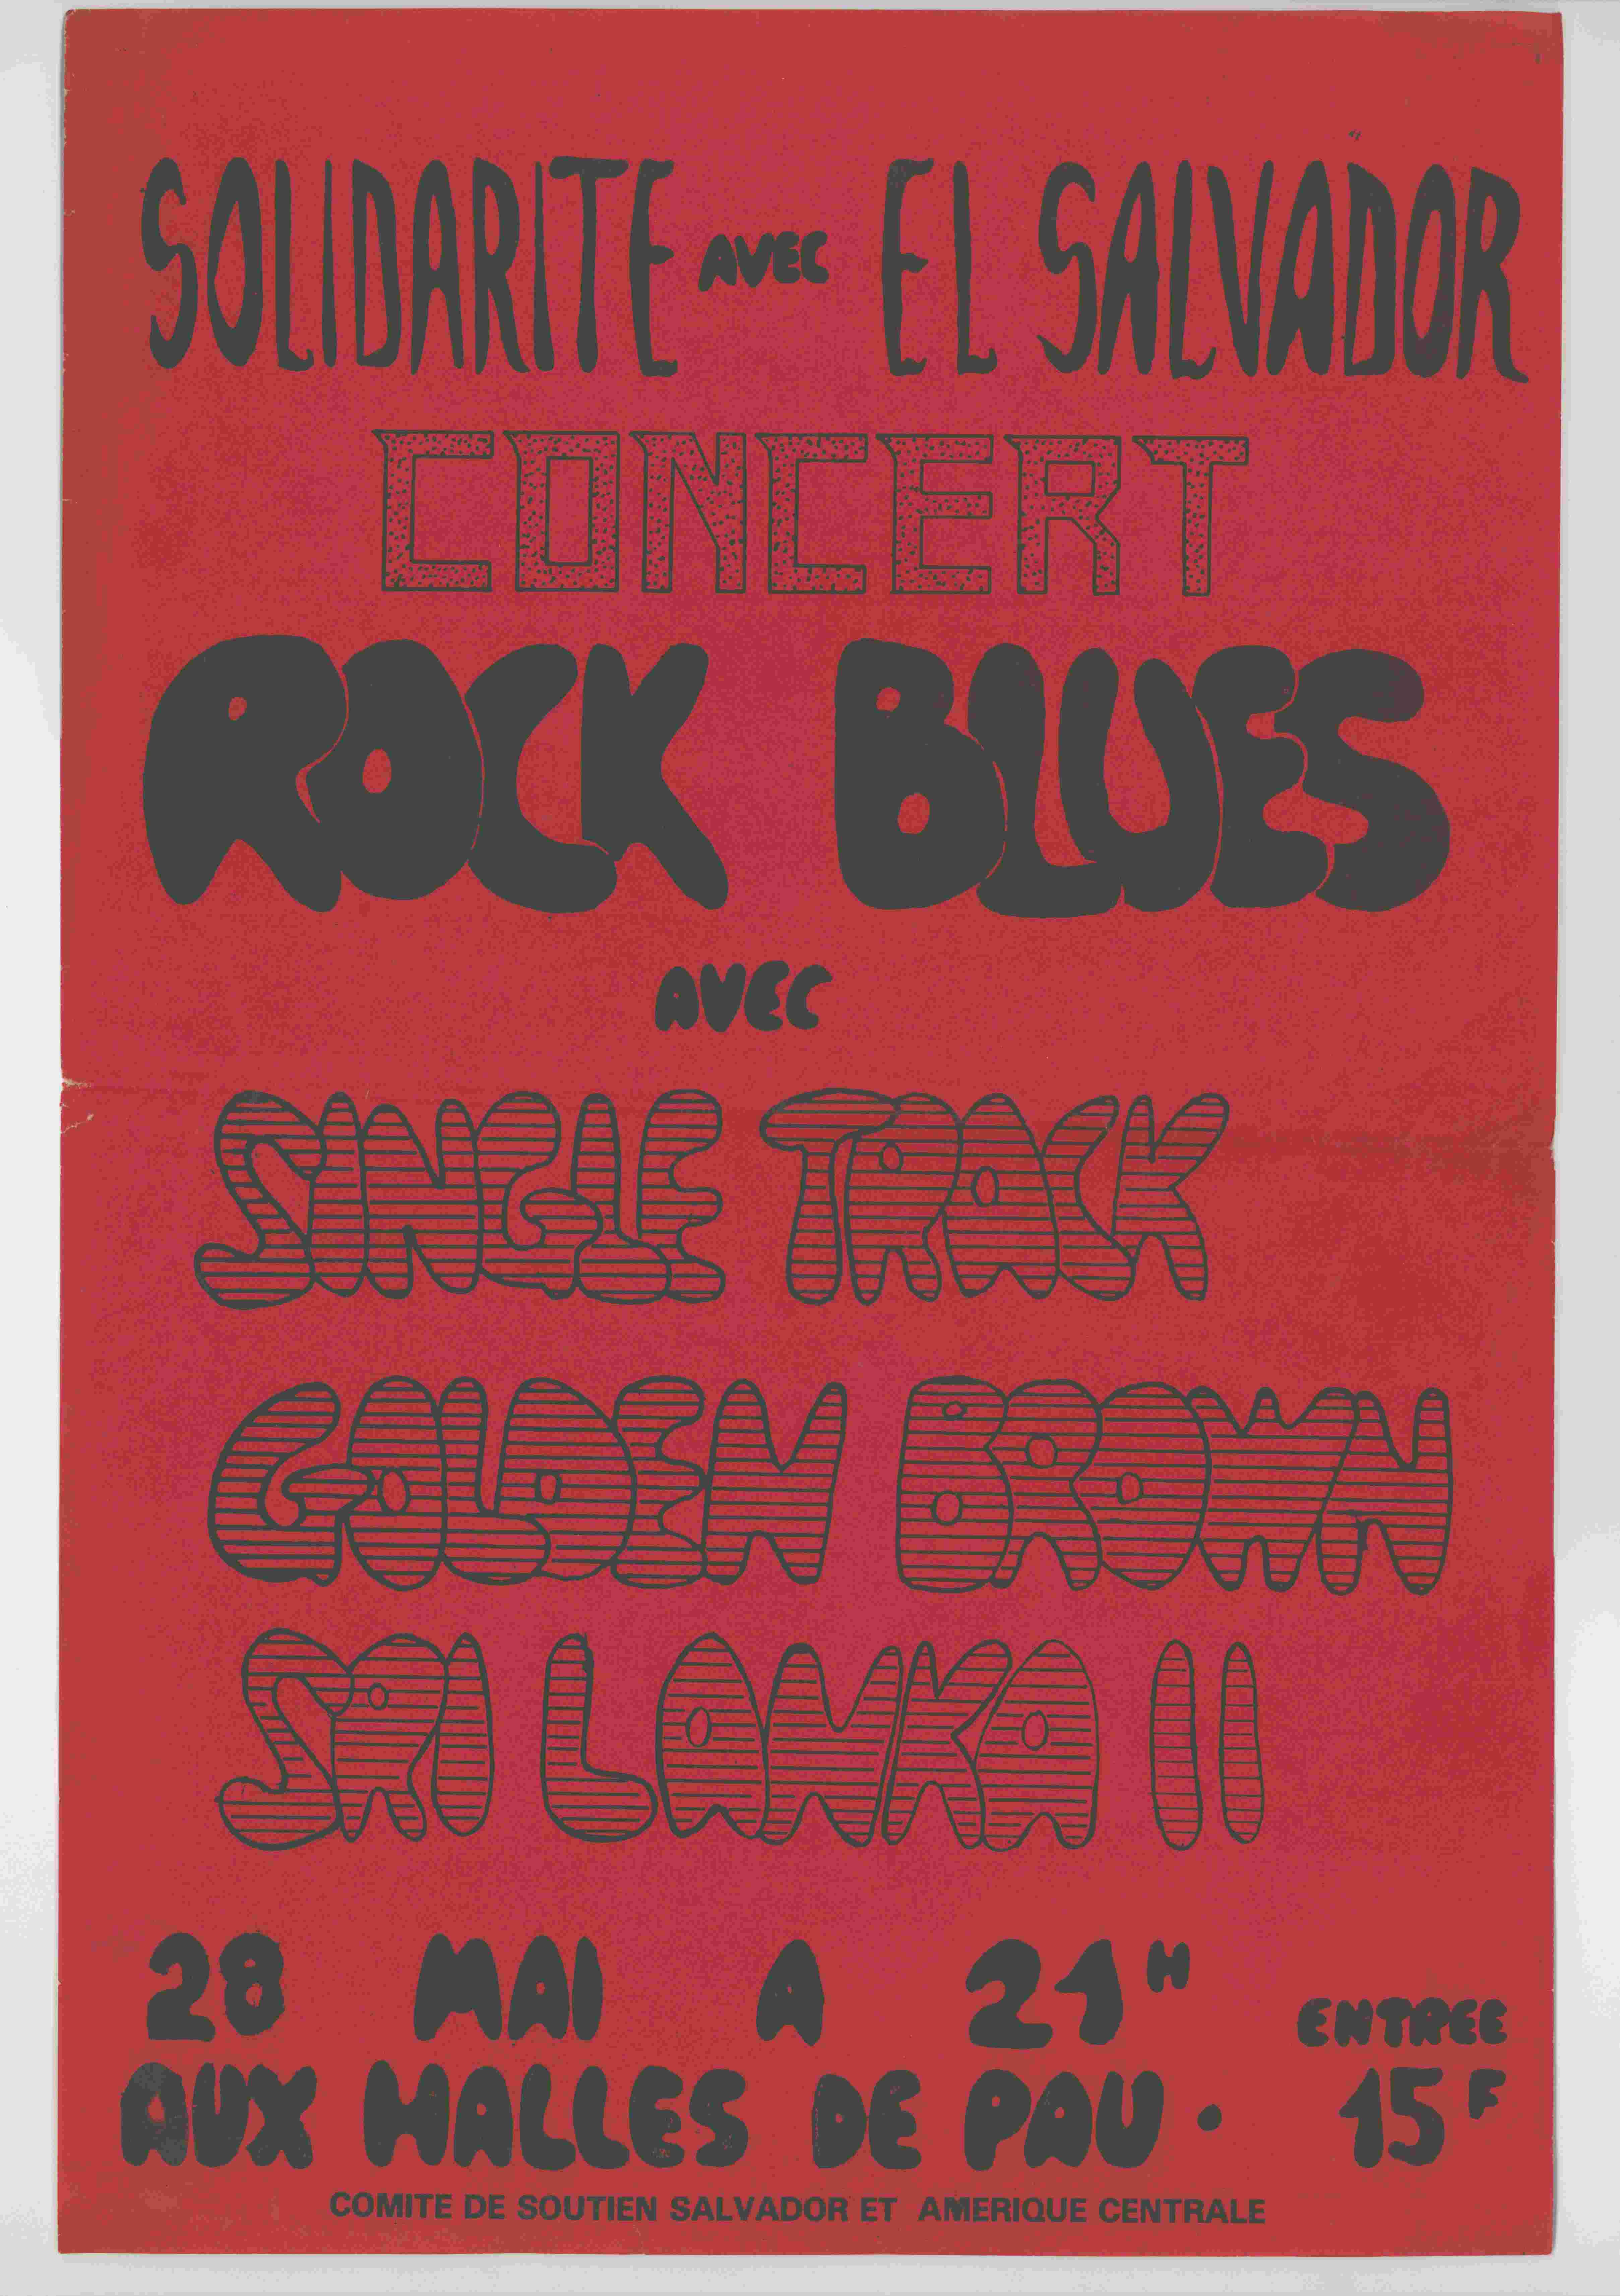 SOLIDARITE AVEC EL SALVADOR
CONCERT
ROCK BLUES
AVEC
SINGLE TRACK
GOLDEN BROWN
SRI LANKA II
28 MAI A 21H
ENTREE
AUX HALLES DE PAU . 15F
COMITE DE SOUTIEN SALVADOR ET AMERIQUE CENTRALE